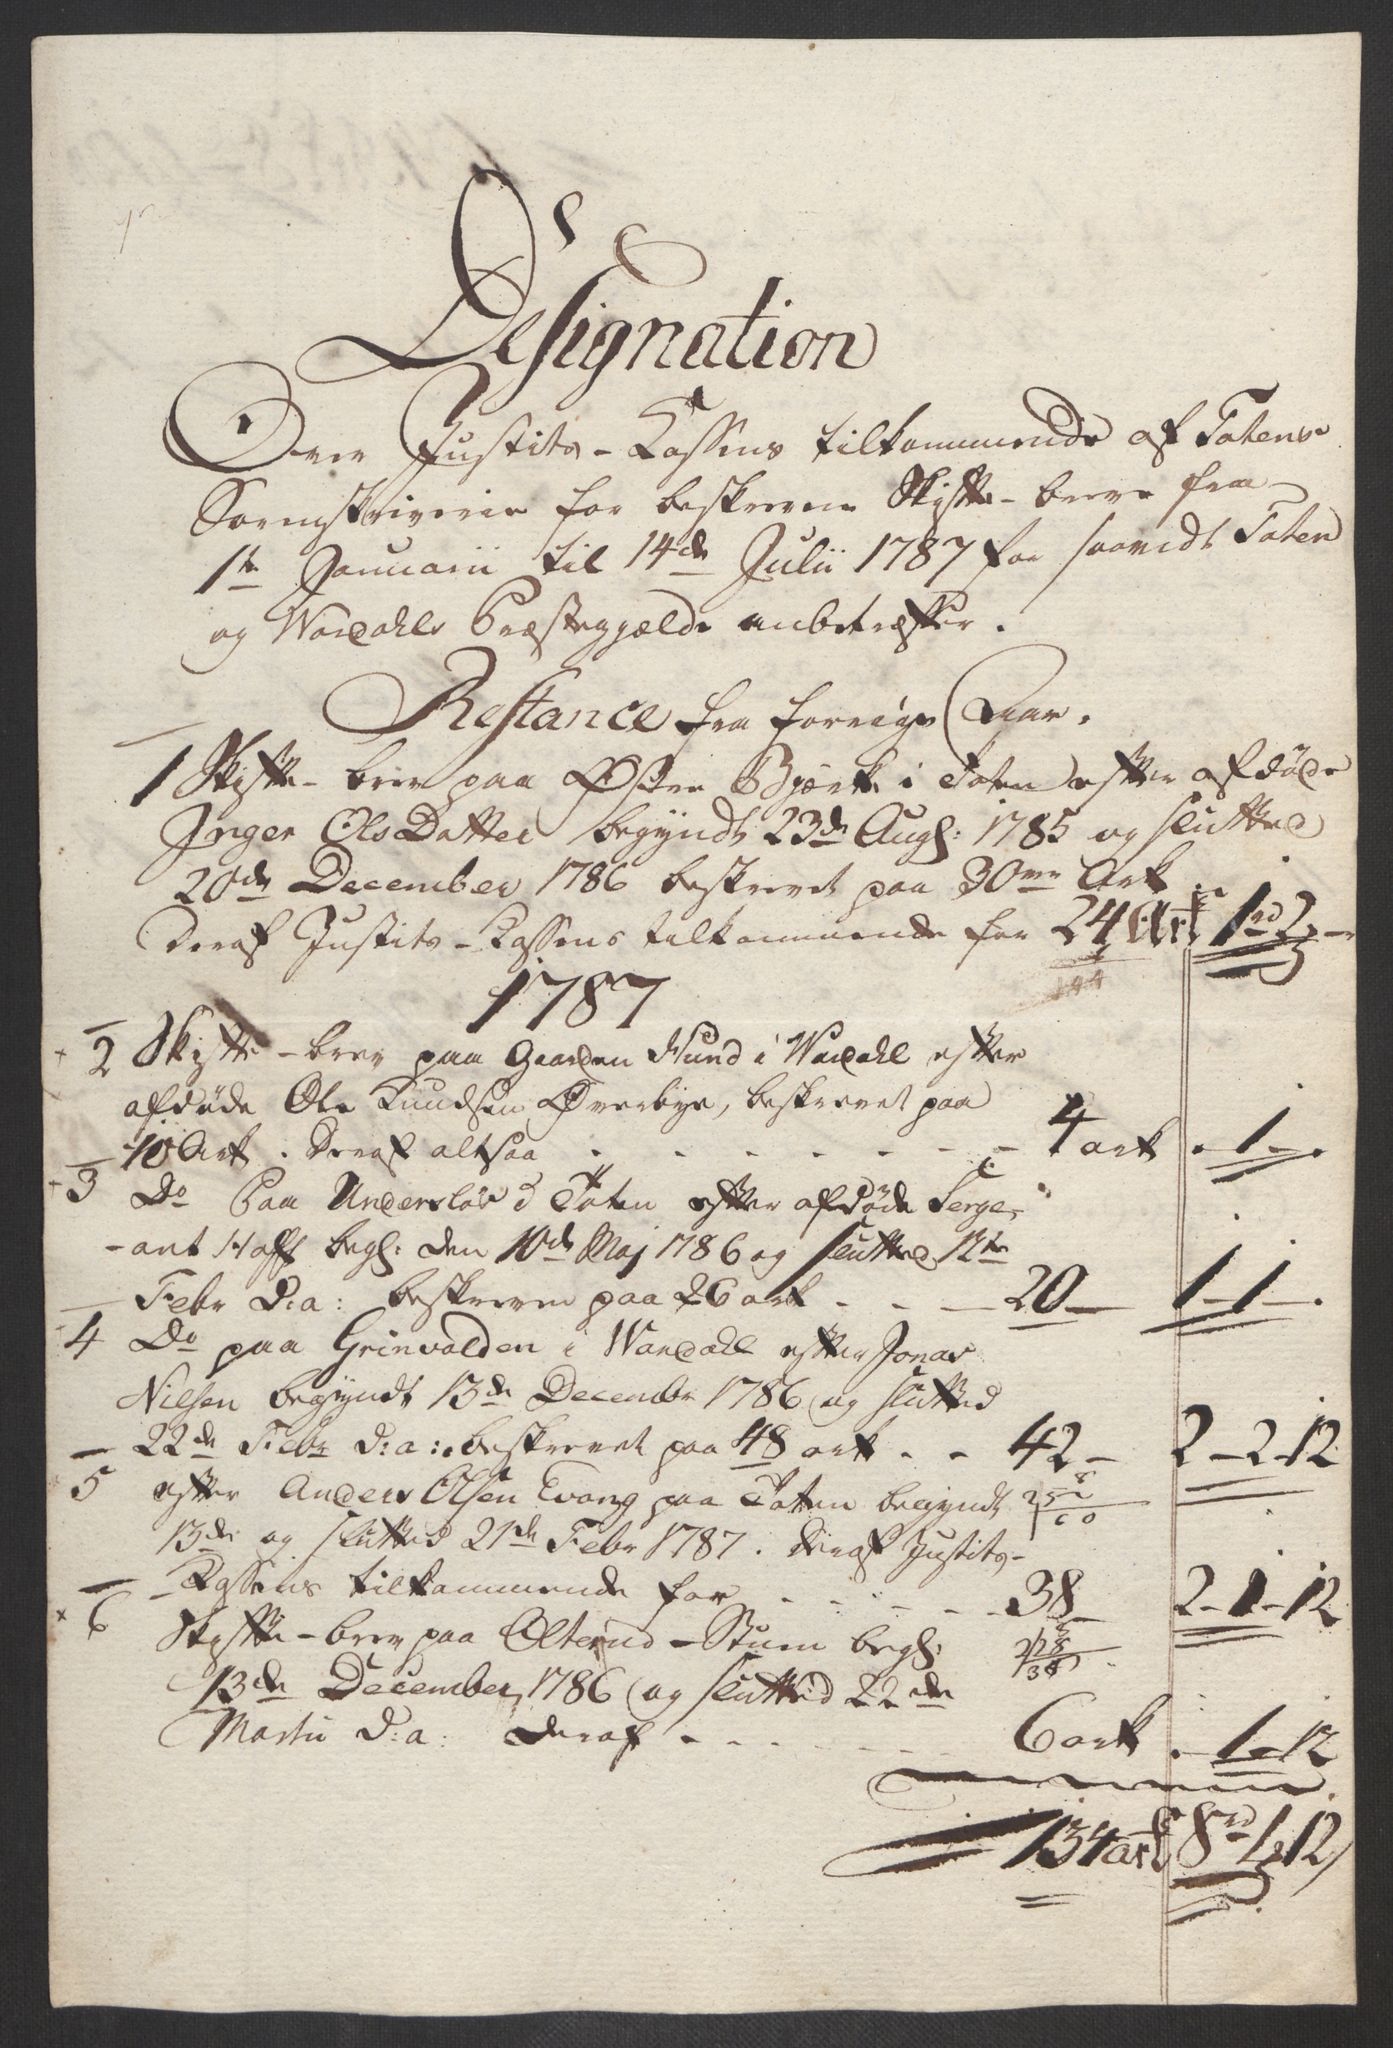 Designation
Over Justits-Cassens tilkommende af Totens
Sorenskriverie for beskreven Skifte-breve fra
1te Januarii til 14de Julii 1787 for saavidt Toten
og Wardahls Præstegjælde anbetræffer.
Restance fra forrige Aar.
1 Skifte-brev paa Østre Bjørke i Toten efter afdøde
Inger Ols Datter begyndt 23de Augs: 1785 og slutted
20de December 1786 beskrevet paa 30ve Ark
deraf Justits-Cassens tilkommende for 24 Ark 1rd 2
1787
2 Skifte-brev paa Gaarden Hund i Wardahl efter
afdøde Ole Knudsen Øverbye, beskrevet paa
10 Ark. Deraf altsaa - - - - - 4 ark . 1 - .
3 Do Paa Undersløs i Toten efter afdøde Serge-
-ant Hoff begs: den 10de Maj 1786 og slutted 12te
Febr d:a: beskreven paa 26 ark - - - 20 - 1 - 1 - .
4 Do paa Grinvolden i Wardahl efter Jonas
Nilsen begyndt 13de Decembr 1786 og slutted
22de Febr d:a: beskrevet paa 48 ark - - 42 - 2 - 2 - 12
5 efter Anders Olsen Evang paa Toten begyndt
13de og slutted 21de Febr 1787. deraf Justits-
-Cassens tilkommende for - - - - - 38 - 2 - 1 - 12
6 Skifte-brev paa Olterud-Stuen begs:
13de December 1786 og slutted 22de
Martii d:a: deraf - - - - - 6 ark . 1 - 12
134 ark 8rd 1 12